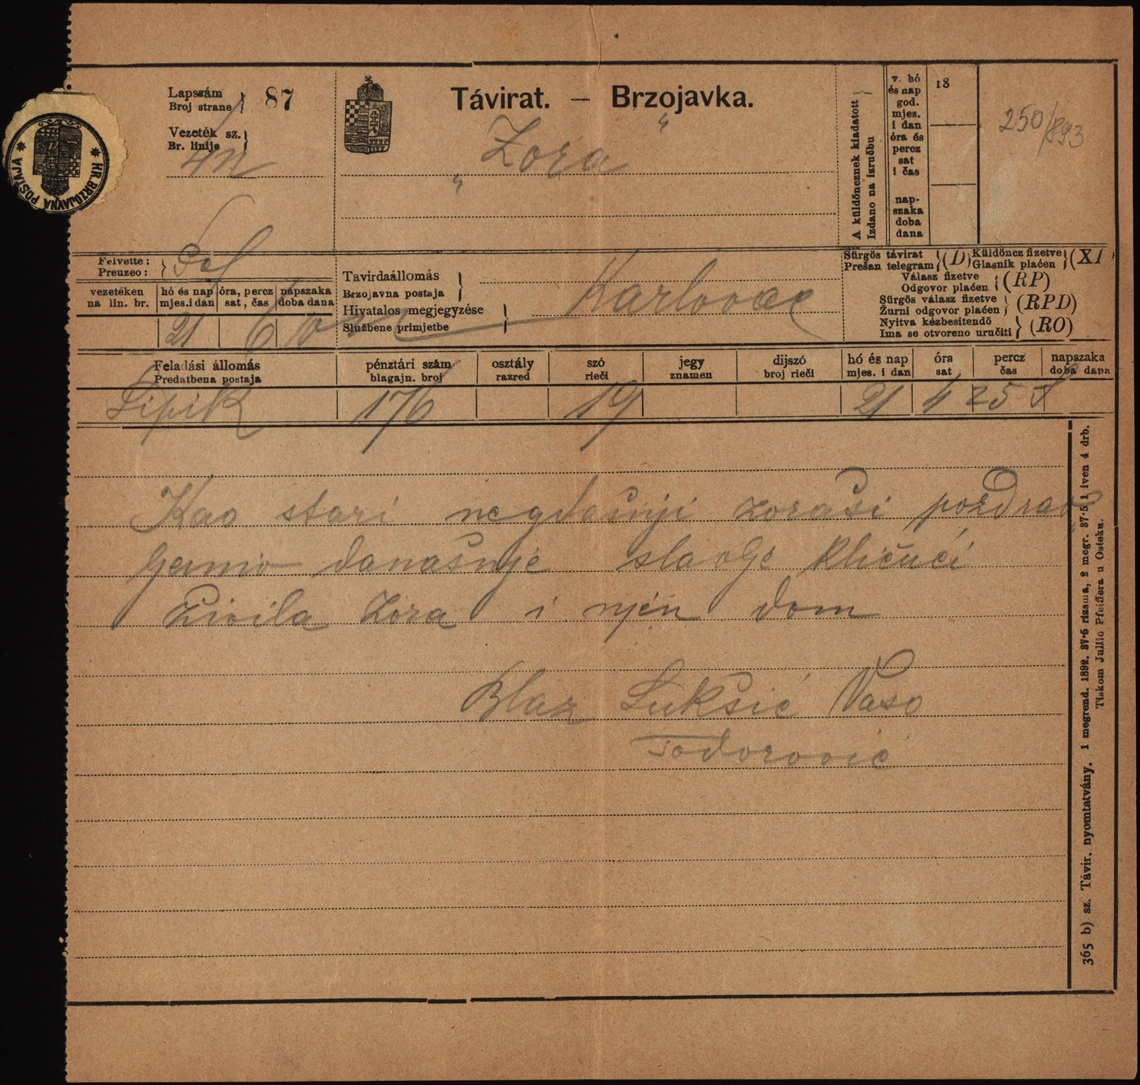 Lapszám
Broj strane } 87
Vezeték sz.
Br. linije }
KR. BRZOJAVNA POSTAJA
Távirat. — Brzojavka.
"Zora"
A küldöncznek kiadatott
Izdano na izručbu
v. hó
és nap
god.
mjes.
i dan
óra és
percz
sat
i čas
nap-
szaka
doba
dana
18
250/893
Felvette:
Preuzeo: }
vezetéken
na lin. br.
hó és nap
mjes. i dan
21
óra, percz
sat, čas
6
napszaka
doba dana
Távirdaállomás
Brzojavna postaja }
Karlovac
Hivatalos megjegyzése
Službene primjetbe }
Sürgős távirat
Prešan telegram } (D)
Küldöncz fizetve
Glasnik plaćen } (XP)
Válasz fizetve
Odgovor plaćen } (RP)
Sürgős válasz fizetve
Žurni odgovor plaćen } (RPD)
Nyitva kézbesitendő
Ima se otvoreno uručiti } (RO)
Feladási állomás
Predatbena postaja
Lipik
pénztári szám
blagajn. broj
176
osztály
razred
szó
rieči
19
jegy
znamen
díjszó
broj rieči
hó és nap
mjes. i dan
21
óra
sat
4
percz
čas
25
napszaka
doba dana
Kao stari negdašnji zoraši pozdrav
ljamo današnje slavlje kličući
Živila Zora i njen dom
Blaz Lukšić Vaso
Todorović
365 b) sz. Távir. nyomtatvány. 1 megrend. 1892. 37·5 rizsma, 2 megr. 37·5 1 iven 4 drb.
Tiskom Julio Pfeiffera u Osieku.